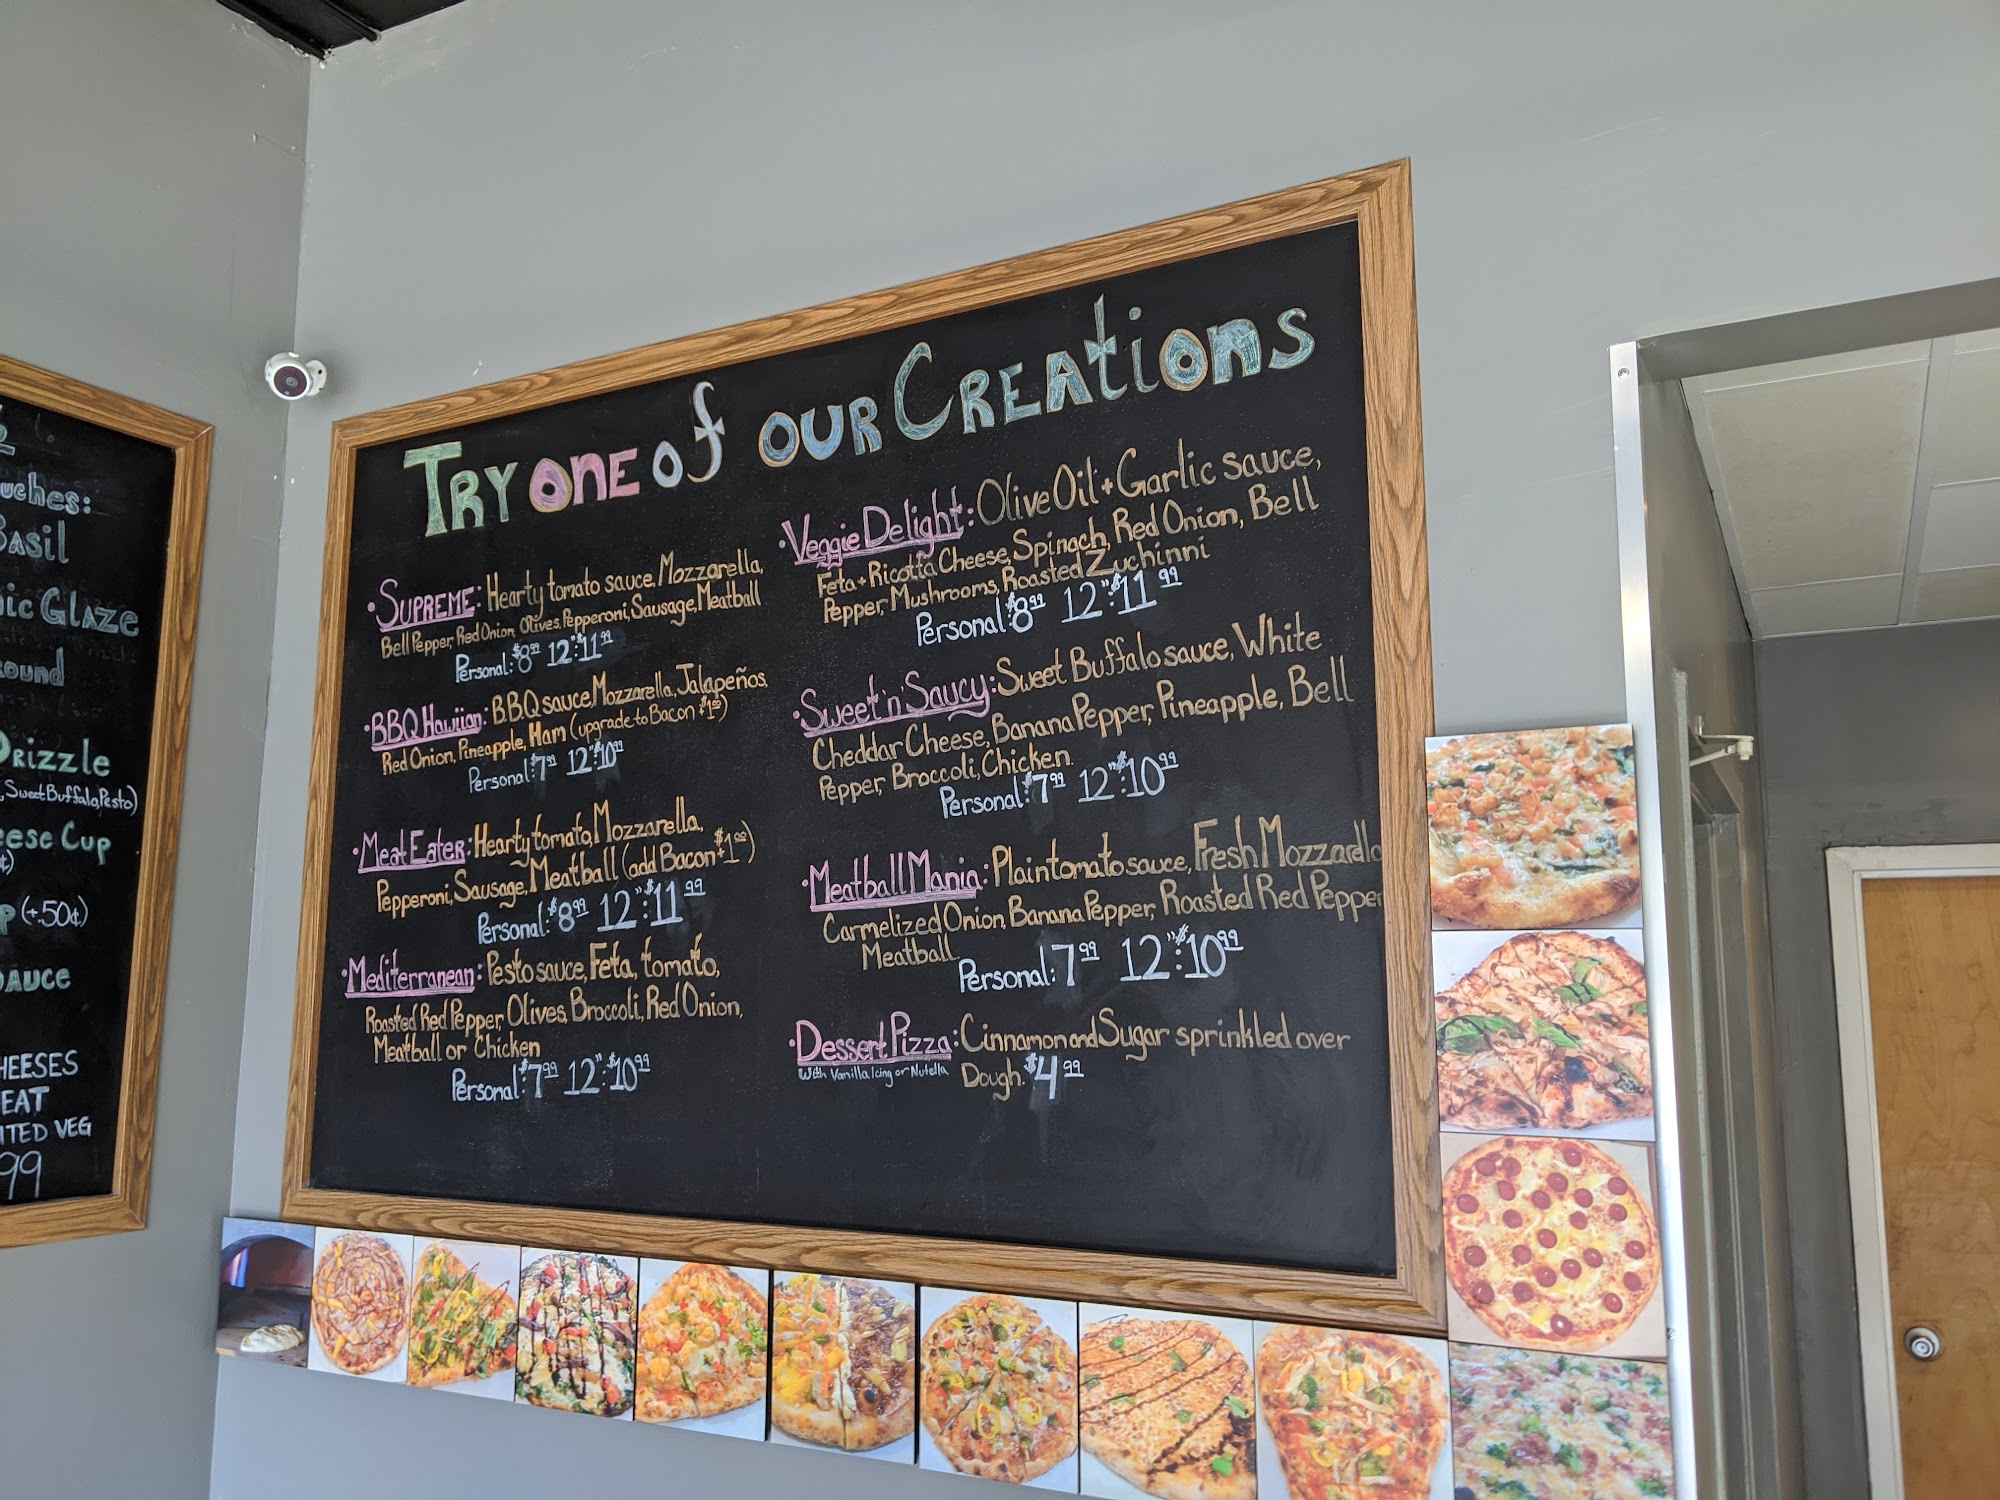 uches:
Basil
ic Glaze
ound
Drizzle
, Sweet Buffalo, Pesto)
eese Cup
¢)
p (+.50¢)
Sauce
HEESES
EAT
ITED VEG
99
Try one of our Creations
• Supreme: Hearty tomato sauce, Mozzarella,
Bell Pepper, Red Onion, Olives, Pepperoni, Sausage, Meatball
Personal: $8.99 12": $11.99
• BBQ Hawiian: B.B.Q sauce, Mozzarella, Jalapeños,
Red Onion, Pineapple, Ham (upgrade to Bacon $1.00)
Personal: $7.99 12": $10.99
• Meat Eater: Hearty tomato, Mozzarella,
Pepperoni, Sausage, Meatball (add Bacon + $1.00)
Personal: $8.99 12": $11.99
• Mediterranean: Pesto sauce, Feta, tomato,
Roasted Red Pepper, Olives, Broccoli, Red Onion,
Meatball or Chicken
Personal: $7.99 12": $10.99
• Veggie Delight: Olive Oil + Garlic sauce,
Feta + Ricotta Cheese, Spinach, Red Onion, Bell
Pepper, Mushrooms, Roasted Zuchinni
Personal: $8.99 12": $11.99
• Sweet 'n' Saucy: Sweet Buffalo sauce, White
Cheddar Cheese, Banana Pepper, Pineapple, Bell
Pepper, Broccoli, Chicken.
Personal: $7.99 12": $10.99
• Meatball Mania: Plain tomato sauce, Fresh Mozzarella
Carmelized Onion, Banana Pepper, Roasted Red Pepper
Meatball.
Personal: 7.99 12": $10.99
• Dessert Pizza: Cinnamon and Sugar sprinkled over
With Vanilla Icing or Nutella Dough. $4.99